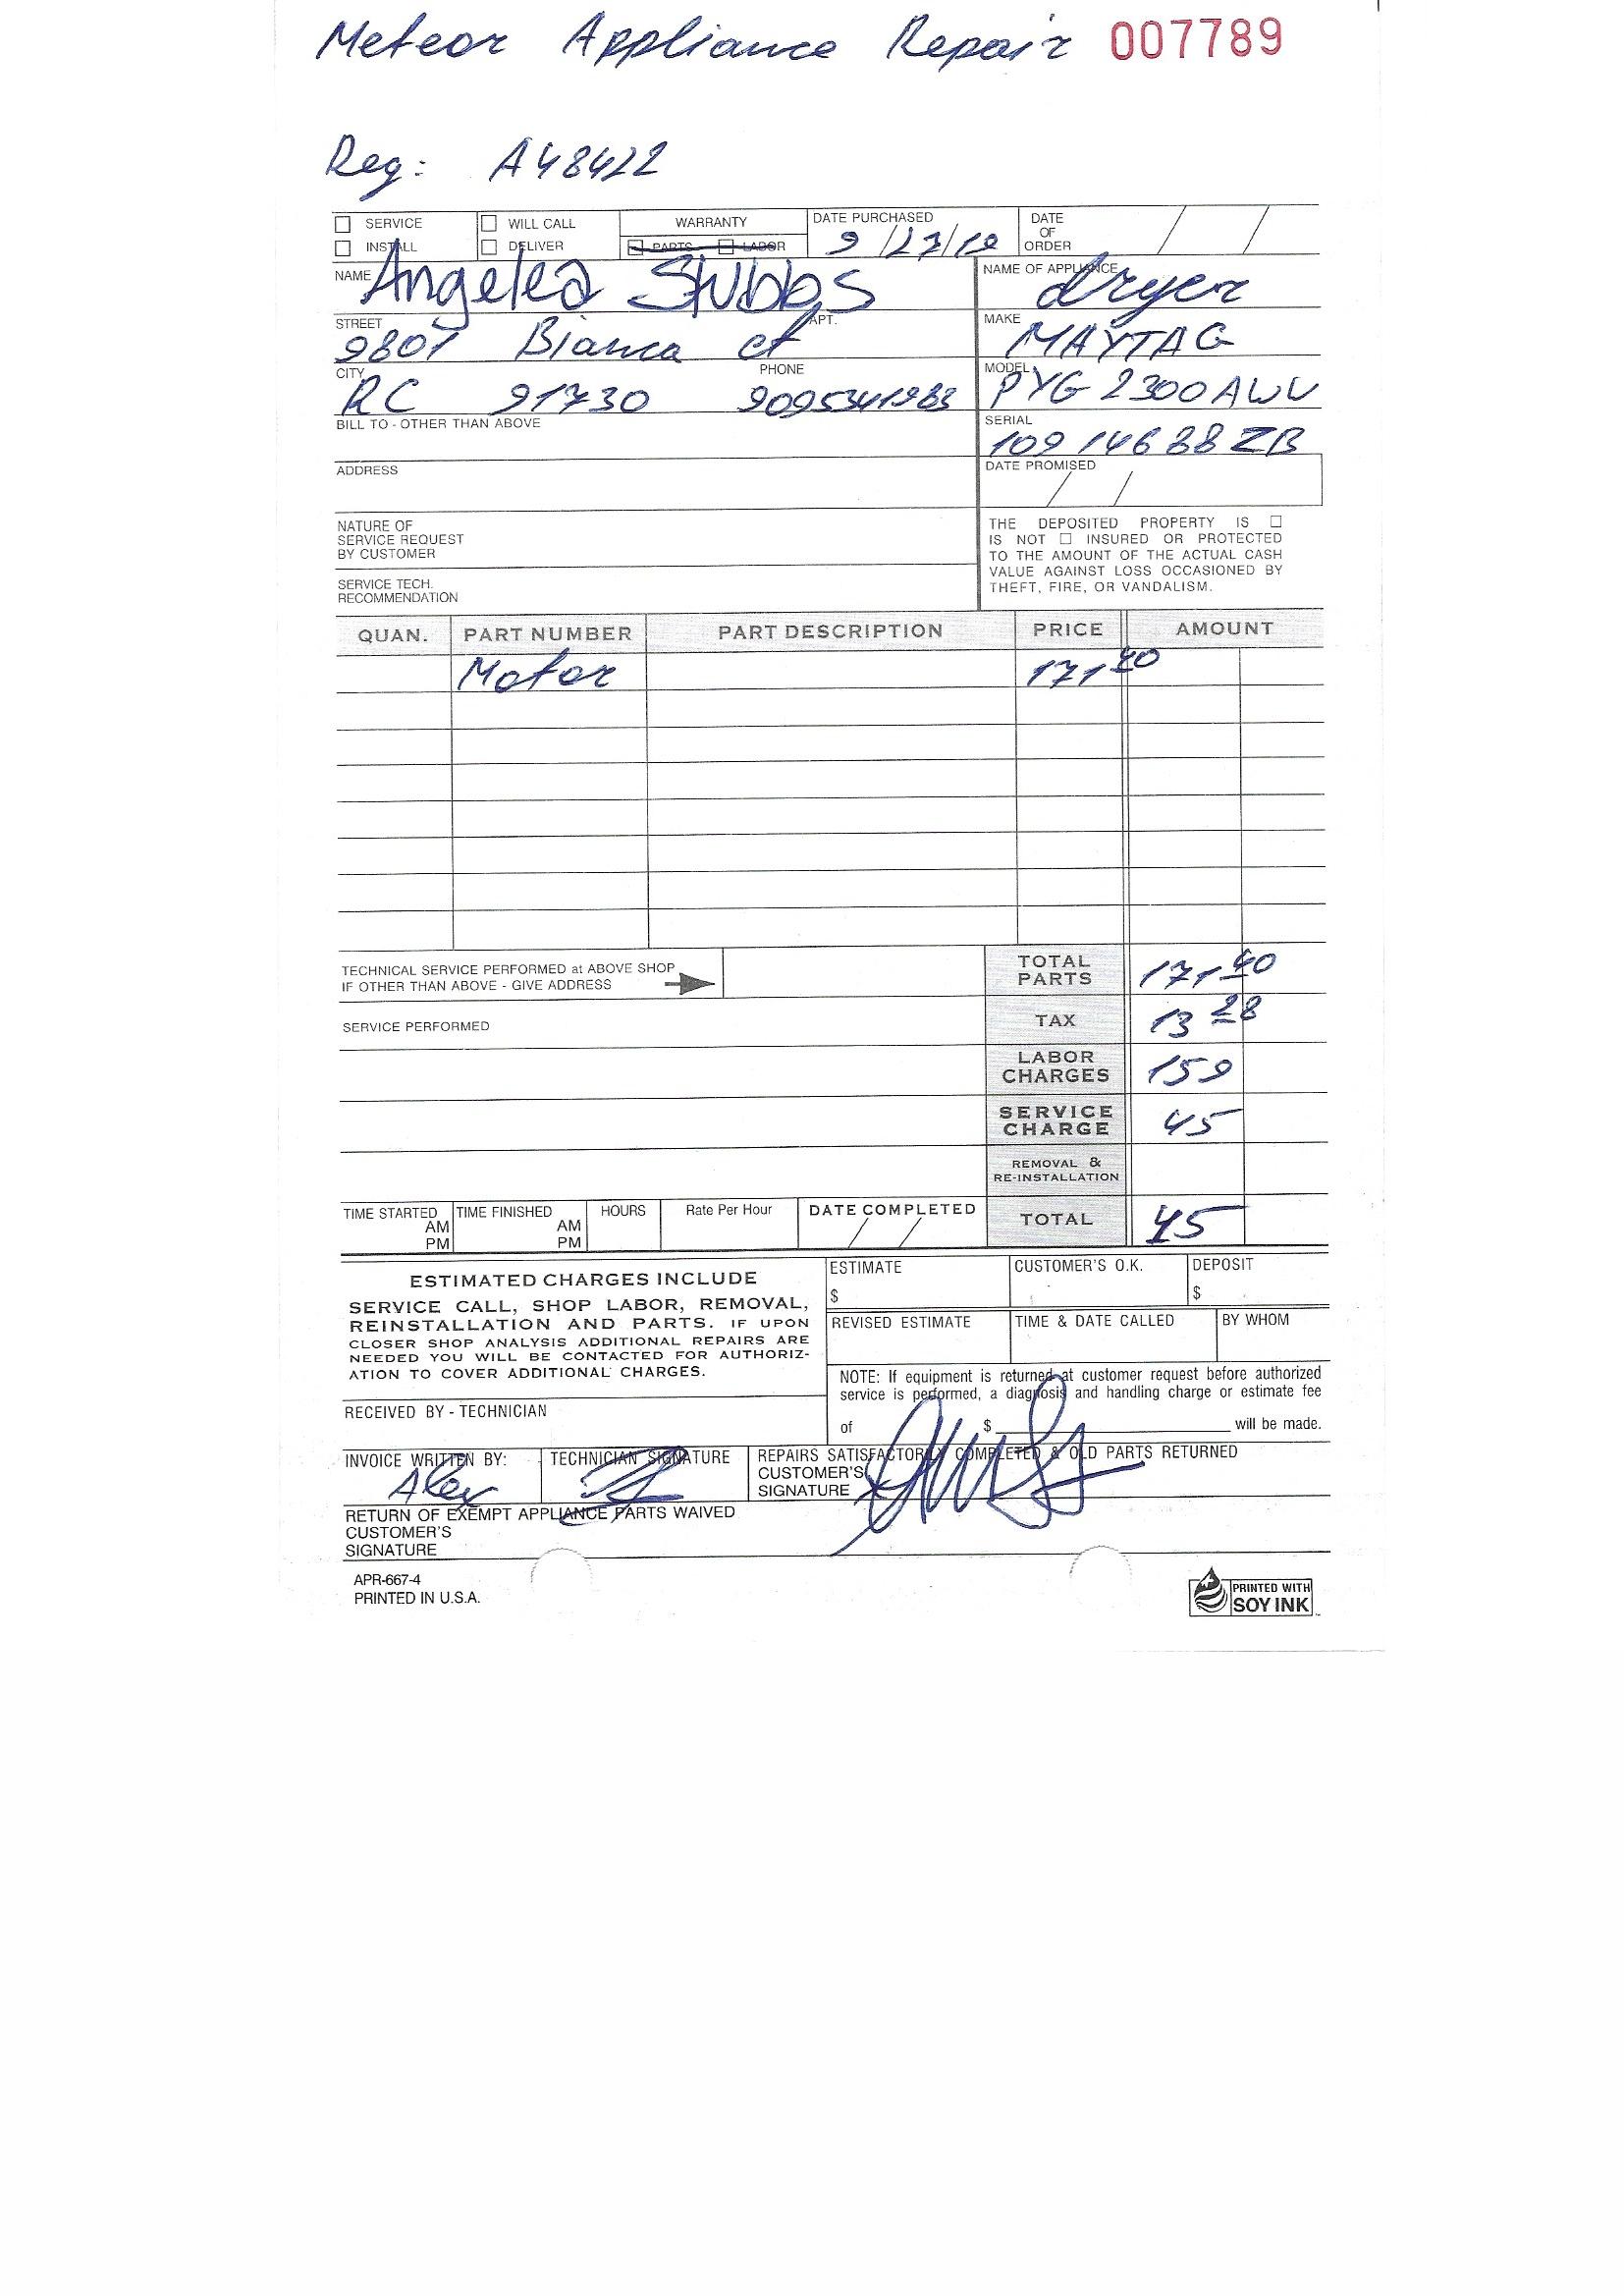 Meteor Appliance Repair 007789
Reg: A48422
SERVICE WILL CALL WARRANTY DATE PURCHASED DATE OF ORDER
INSTALL DELIVER PARTS LABOR 9/27/12
NAME Angelea Stubbs NAME OF APPLIANCE dryer
STREET 9807 Bianca ct APT. MAKE MAYTAG
CITY RC 91730 PHONE 9095341983 MODEL PYG2300AWW
BILL TO - OTHER THAN ABOVE SERIAL 10914688ZB
ADDRESS DATE PROMISED / /
NATURE OF
SERVICE REQUEST
BY CUSTOMER
SERVICE TECH.
RECOMMENDATION
THE DEPOSITED PROPERTY IS
IS NOT INSURED OR PROTECTED
TO THE AMOUNT OF THE ACTUAL CASH
VALUE AGAINST LOSS OCCASIONED BY
THEFT, FIRE, OR VANDALISM.
QUAN. PART NUMBER PART DESCRIPTION PRICE AMOUNT
Motor 171.40
TECHNICAL SERVICE PERFORMED at ABOVE SHOP
IF OTHER THAN ABOVE - GIVE ADDRESS
TOTAL PARTS 171.40
SERVICE PERFORMED
TAX 13 28
LABOR CHARGES 159
SERVICE CHARGE 45
REMOVAL & RE-INSTALLATION
TIME STARTED AM PM TIME FINISHED AM PM HOURS Rate Per Hour DATE COMPLETED / / TOTAL 45
ESTIMATED CHARGES INCLUDE
SERVICE CALL, SHOP LABOR, REMOVAL,
REINSTALLATION AND PARTS. IF UPON
CLOSER SHOP ANALYSIS ADDITIONAL REPAIRS ARE
NEEDED YOU WILL BE CONTACTED FOR AUTHORIZ-
ATION TO COVER ADDITIONAL CHARGES.
ESTIMATE $ CUSTOMER'S O.K. DEPOSIT $
REVISED ESTIMATE TIME & DATE CALLED BY WHOM
NOTE: If equipment is returned at customer request before authorized
service is performed, a diagnosis and handling charge or estimate fee
of $ will be made.
RECEIVED BY - TECHNICIAN
INVOICE WRITTEN BY: Alex TECHNICIAN SIGNATURE REPAIRS SATISFACTORILY COMPLETED & OLD PARTS RETURNED
CUSTOMER'S
SIGNATURE
RETURN OF EXEMPT APPLIANCE PARTS WAIVED
CUSTOMER'S
SIGNATURE
APR-667-4
PRINTED IN U.S.A.
PRINTED WITH
SOY INK